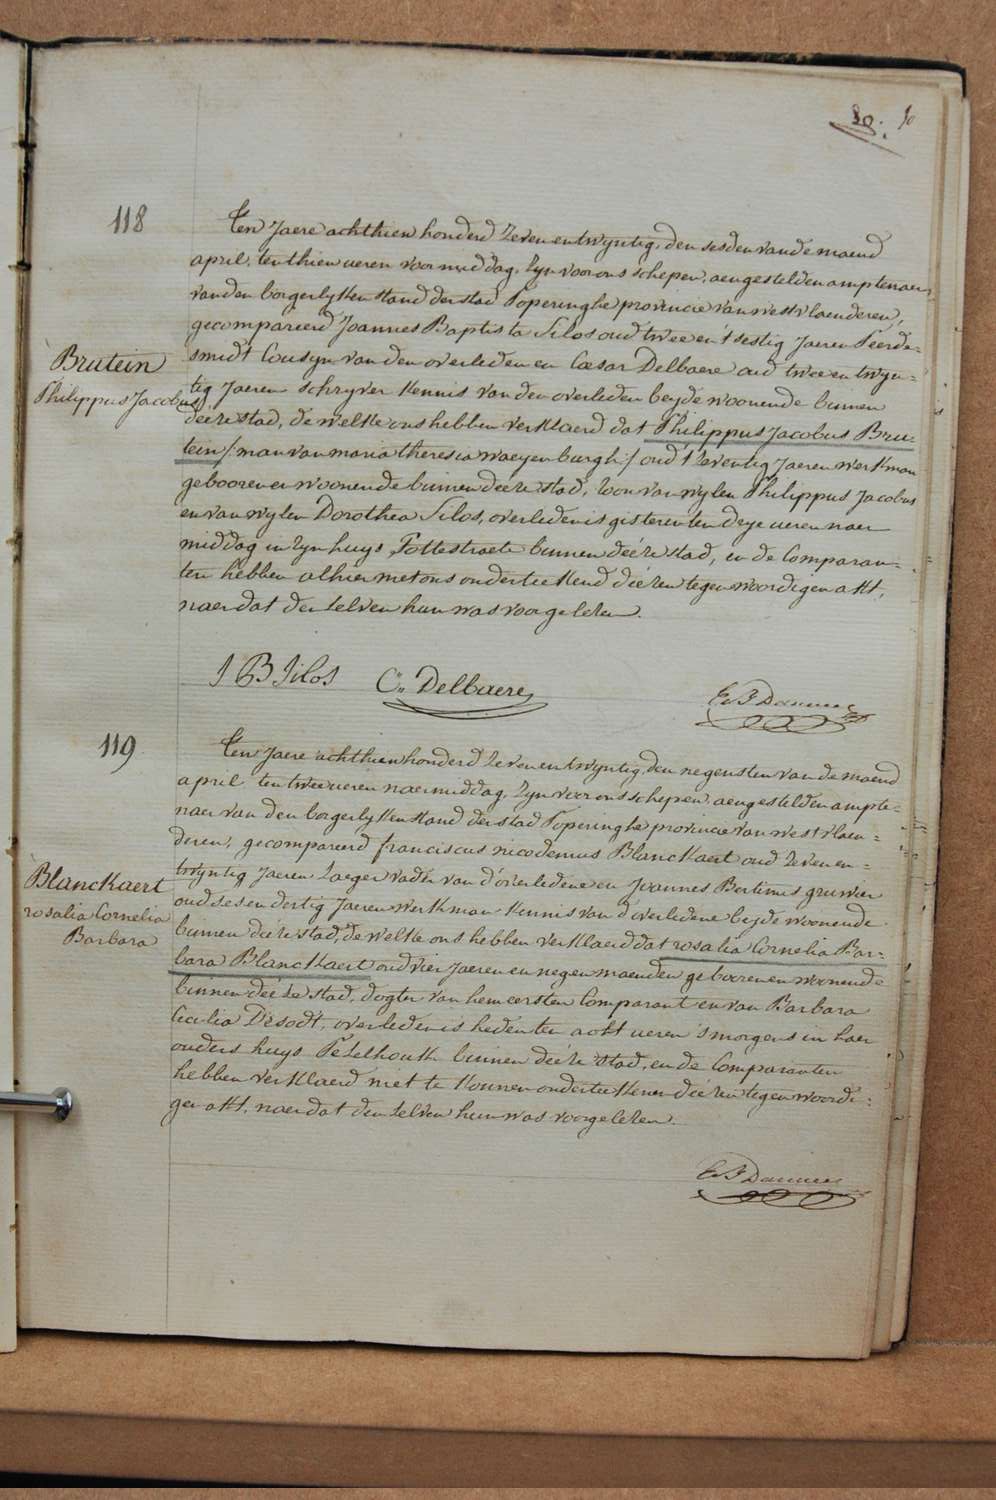 80. 80
118
Ten Jaere achthien honderd Zeven en twyntig, den sesden van de maend
april, ten thien ueren voor middag, Zyn voor ons schepen, aengestelden amptenaer
van den borgerlyken stand der stad Poperinghe provincie van westvlaenderen,
gecompareerd Joannes Baptista Silos oud twee en 't sestig Jaeren Peerde=
Brutein
Philippus Jacobus
smidt Cousyn van den overleden en Cæsar Delbaere oud twee en twyn=
tig Jaeren schryver Kennis van den overleden beyde woonende binnen
deéze stad, de welke ons hebben verklaerd dat Philippus Jacobus Bru=
tein / man van maria theresia waeyenburgh / oud 't Zeventig Jaeren werkman
gebooren en woonende binnen deéze stad, Zoon van wylen Philippus Jacobus
en van wylen Dorothea Silos, overleden is gisteren ten drye ueren naer
middag in Zyn huys Pottestraete binnen deéze stad, en de Comparan=
ten hebben alhier met ons onderteekend deézen tegenwoordigen akt,
naer dat den Zelven hun was voorgelezen.
J B Silos C. Delbaere
119
Ten Jaere achthien honderd Zeven en twyntig, den negensten van de maend
april ten twee ueren naermiddag, Zyn voor ons schepen, aengestelden ampte=
naer van den borgerlyken stand der stad Poperinghe provincie van westvlaen=
deren, gecompareerd franciscus nicodemus Blanckaert oud Zeven en=
Blanckaert
rosalia Cornelia
Barbara
twyntig Jaeren Zaeger vader van d'overledene en Joannes Bertinus gruwier
oud ses en dertig Jaeren werkman Kennis van d'overledene beyde woonende
binnen deéze stad, de welke ons hebben verklaerd dat rosalia Cornelia Bar=
bara Blanckaert oud vier Jaeren en negen maenden gebooren en woonende
binnen deéze stad, dogter van hem eersten Comparant en van Barbara
Cecilia Desodt, overleden is heden ten acht ueren 's morgens in haer
ouders huys Pezelhouk binnen deéze stad, en de Comparanten
hebben verklaerd niet te konnen onderteekenen deézen tegenwoordi=
gen akt, naer dat den Zelven hun was voorgelezen.